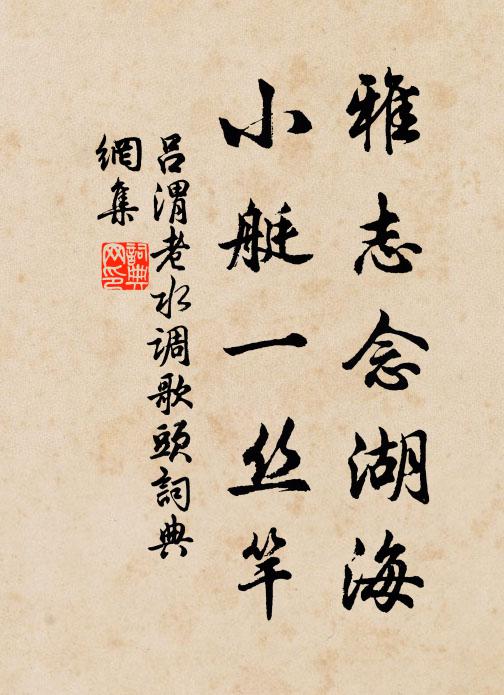 雅志念湖海
小艇一丝竿
吕渭老水调歌頭詞典
網集
詞典
网印